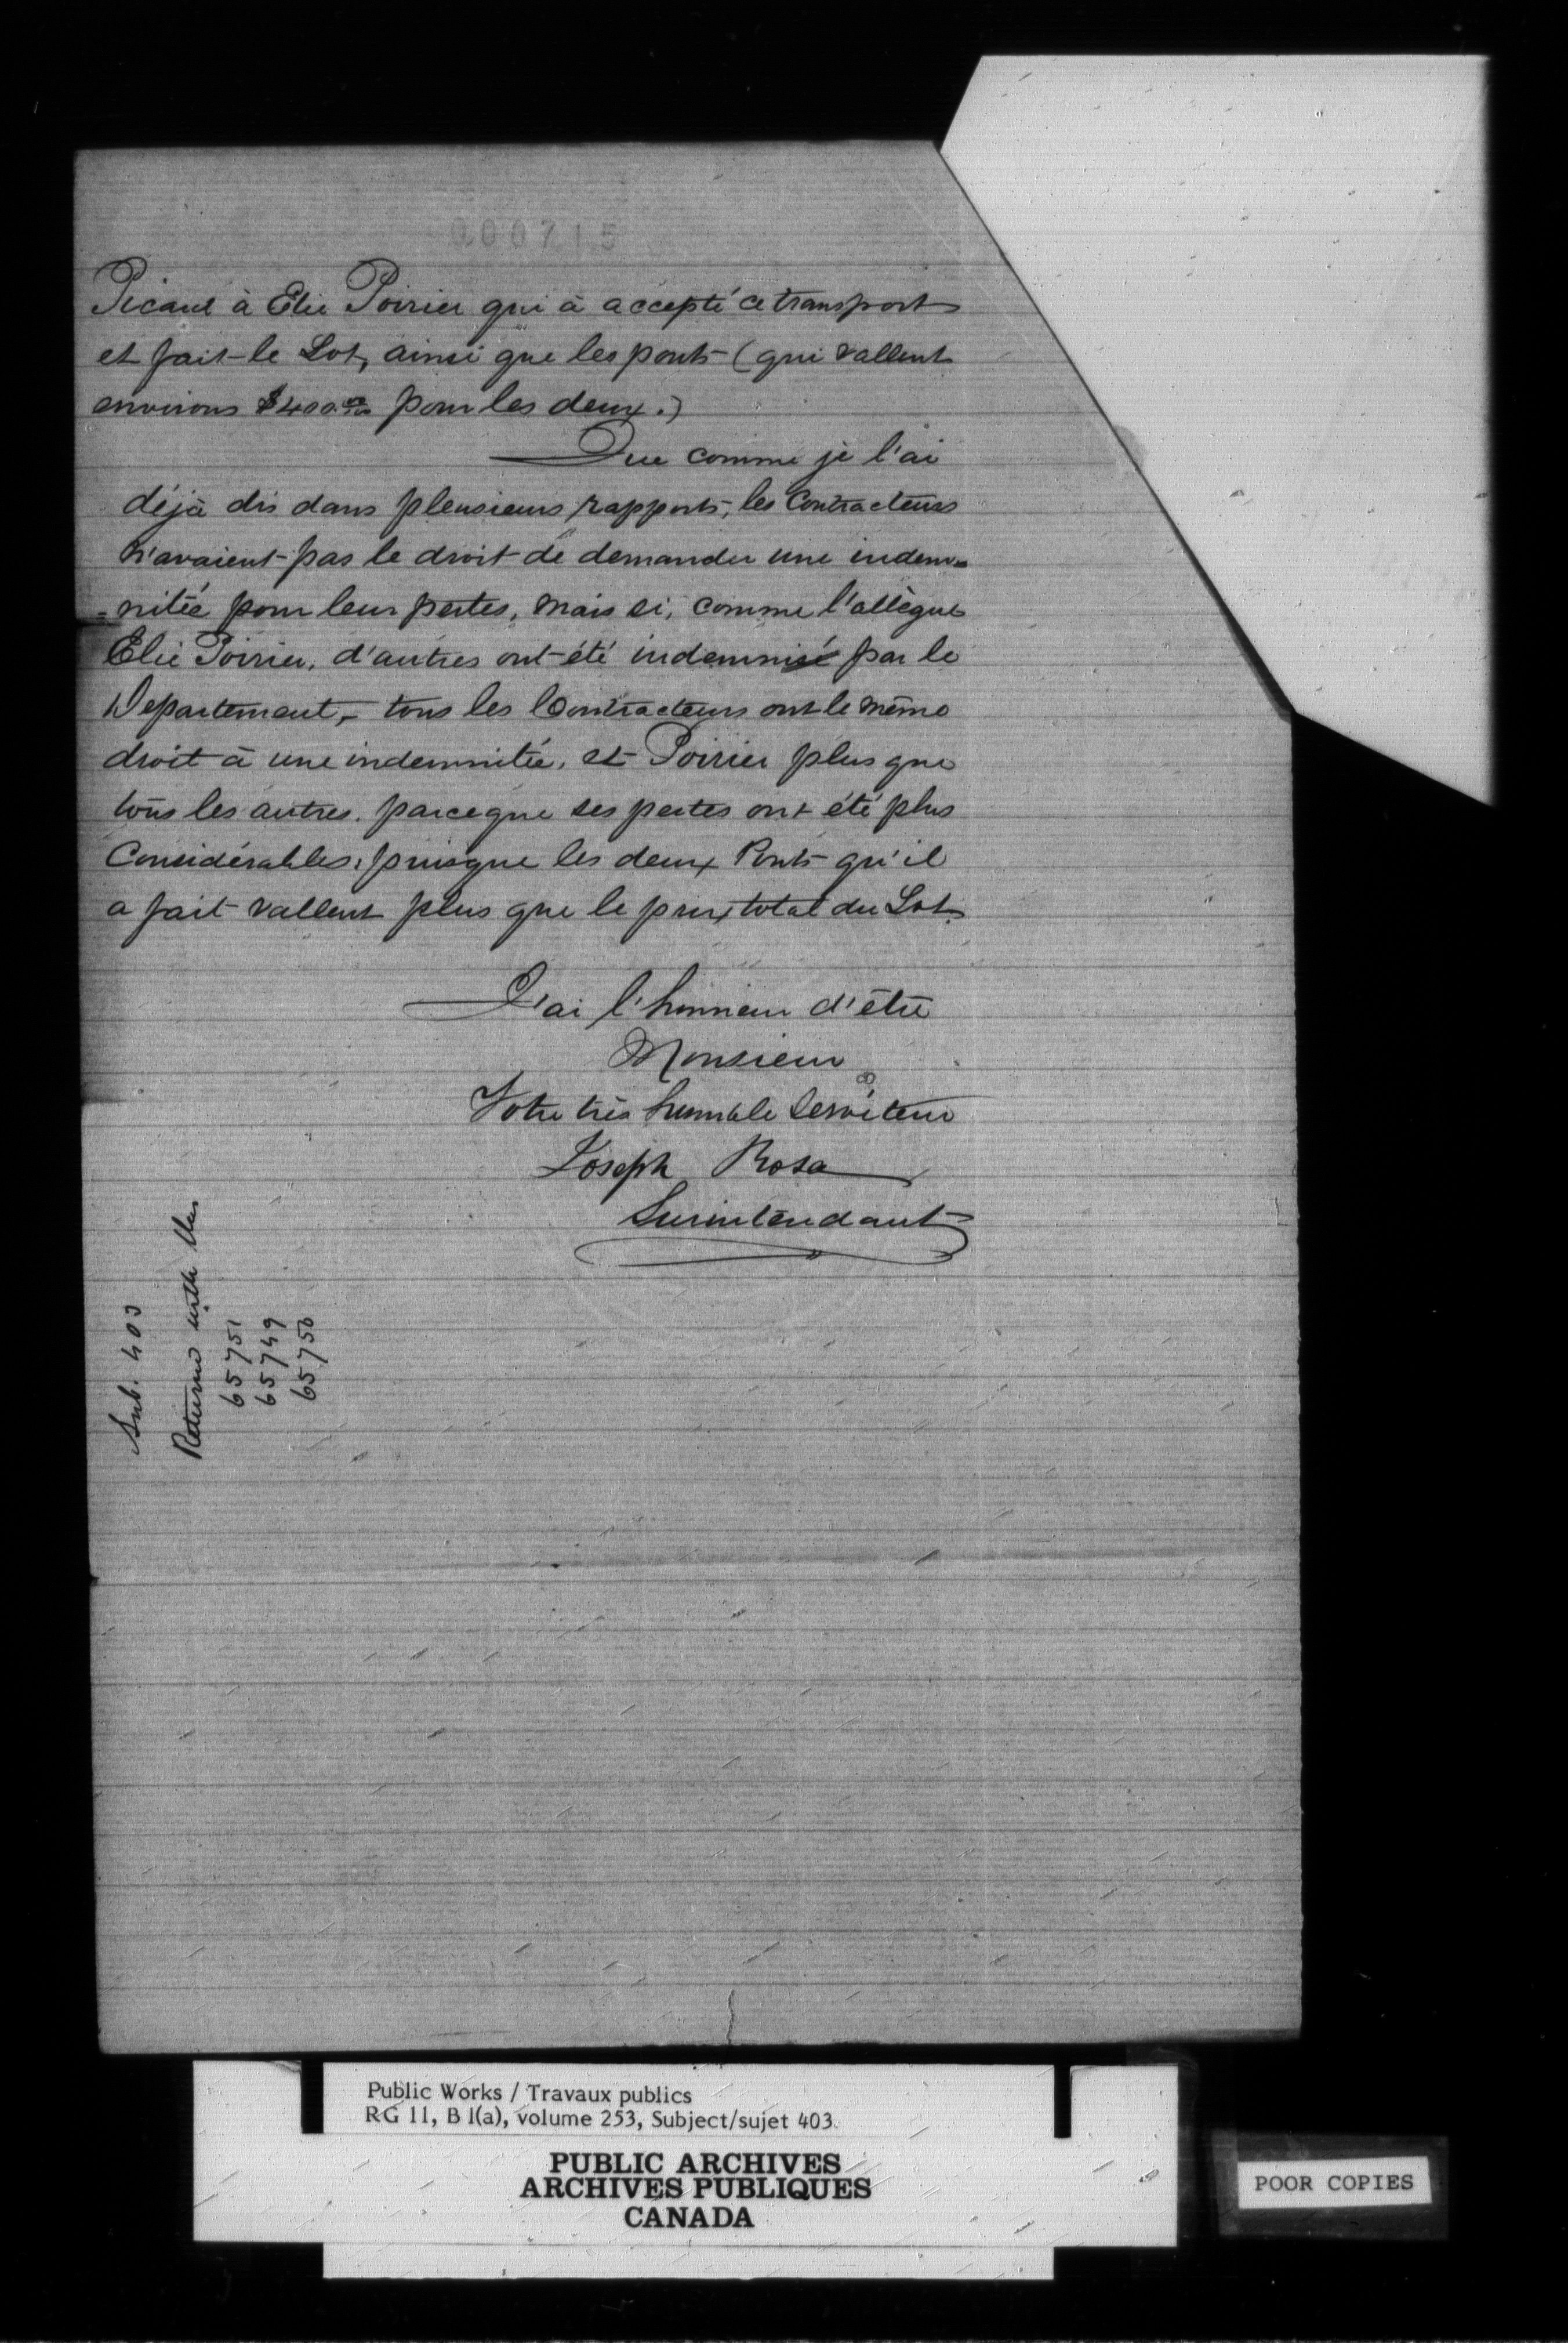 000715
Picard à Elie Poirier qui à accepté ce transport
et fait le Lot, ainsi que les ponts (qui vallent
environs $400.00 pour les deux.)
Que comme je l'ai
déjà dis dans pleusieurs rapports, les Contracteurs
n'avaient pas le droit de demander une indem=
=nitée pour leur pertes, mais si, comme l'allègue
Elie Poirier, d'autres ont été indemnisé par le
Departement, tous les Contracteurs ont le même
droit à une indemnitée, et Poirier plus que
tous les autres, parceque ses pertes ont été plus
Considérables, puisque les deux Ponts qu'il
a fait vallent plus que le prix total du Lot.
J'ai l'honneur d'être
Monsieur
Votre très humble Serviteur
Joseph Rosa
Surintendant
Sub. 403
Returned with this
65751
65749
65750
Public Works / Travaux publics
RG 11, B 1(a), volume 253, Subject/sujet 403
PUBLIC ARCHIVES
ARCHIVES PUBLIQUES
CANADA
POOR COPIES